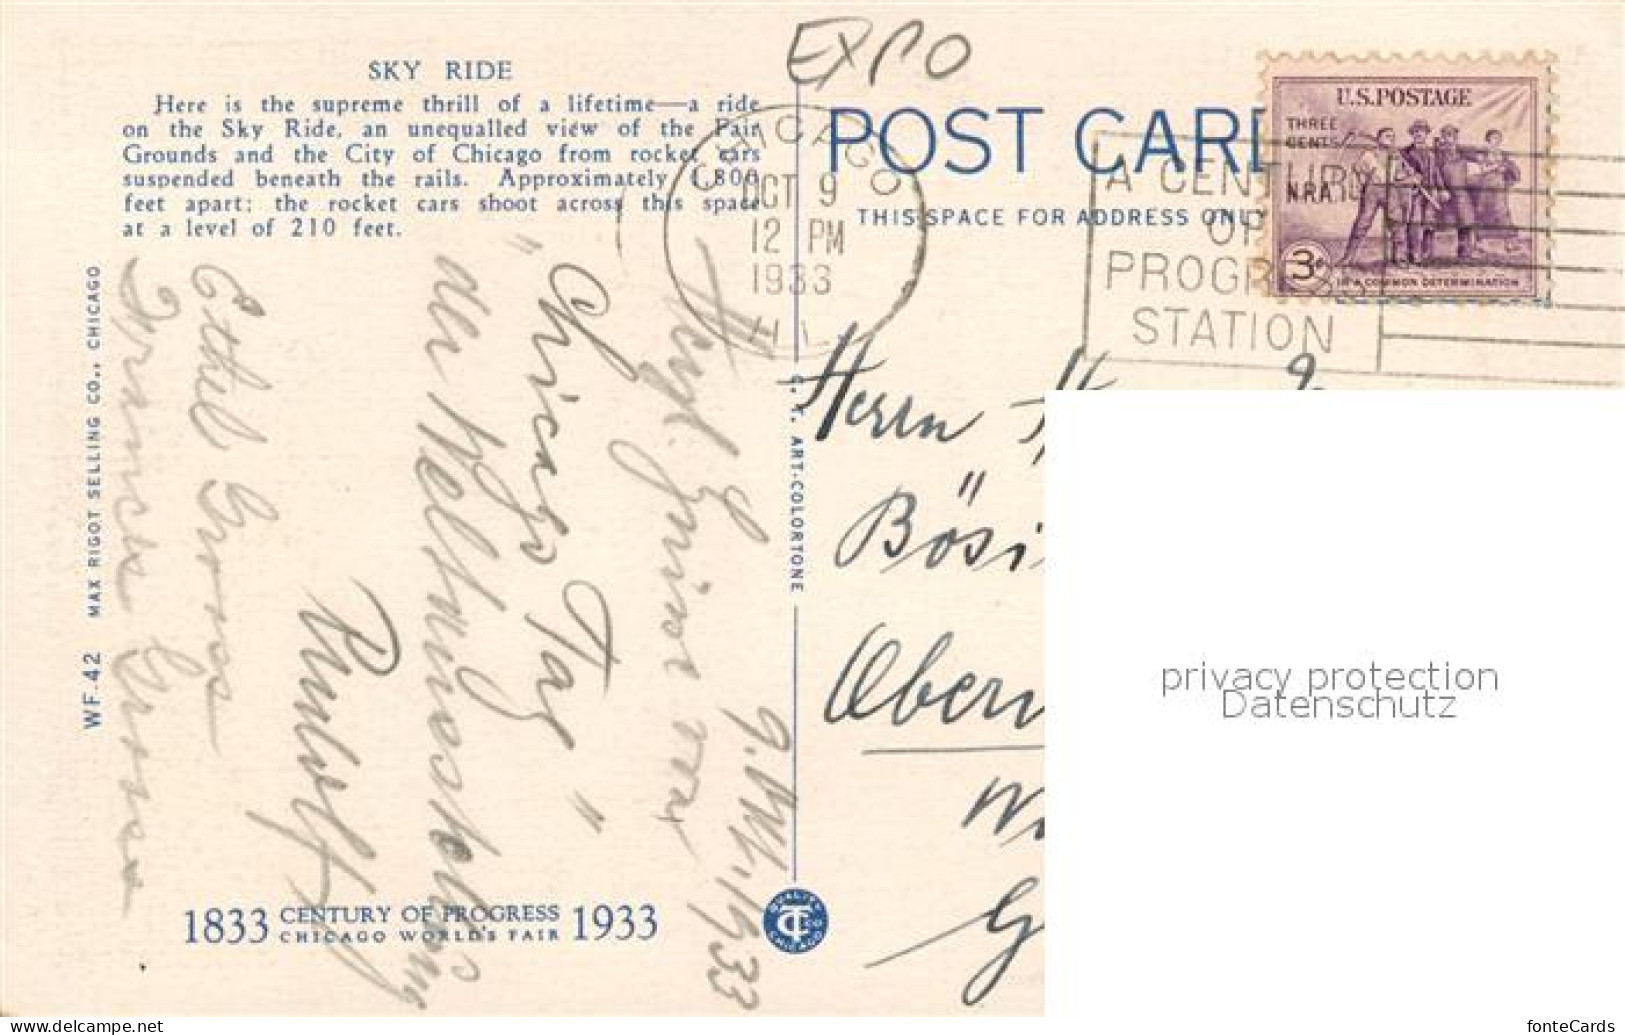 EXPO
SKY RIDE
Here is the supreme thrill of a lifetime—a ride
on the Sky Ride, an unequalled view of the Fair
Grounds and the City of Chicago from rocket cars
suspended beneath the rails. Approximately 1,800
feet apart; the rocket cars shoot across this space
at a level of 210 feet.
POST CARD
THIS SPACE FOR ADDRESS ONLY
CHICAGO
OCT 9
12 PM
1933
ILL.
A CENTURY
OF
PROGRESS
STATION
U.S.POSTAGE
THREE
CENTS
N.R.A.
3¢
IN A COMMON DETERMINATION
WF.42 MAX RIGOT SELLING CO., CHICAGO
C. T. ART-COLORTONE
9. 1933
Herzl. Grüsse vom
"Chicago Tag"
der Weltausstellung
Rudolf
Ethel Gross
Frances Gross
Herrn
Bösi
Obern
1833 CENTURY OF PROGRESS 1933
CHICAGO WORLD'S FAIR
QUALITY
CT CO
CHICAGO
privacy protection
Datenschutz
www.delcampe.net
fonteCards